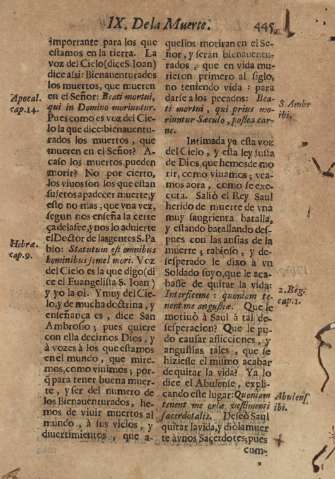 IX. De la Muerte. 445
importante para los que
estamos en la tierra. La
voz del Cielo (dice S. Ioan)
dice asi: Bienaventurados
los muertos, que mueren
en el Señor: Beati mortui,
qui in Domino moriuntur.
Pues como es voz del Cie-
lo la que dice: bienaventu-
rados los muertos, que
mueren en el Señor? A-
caso los muertos pueden
morir? No por cierto,
los vivos son los que están
sujetos a padecer muerte, y
este no mas; que vna vez,
segun nos enseña la certe
ça de la fee, y nos lo advierte
el Doctor de las gentes S. Pa-
blo: Statutum est omnibus
hominibus semel mori. Voz
del Cielo es la que digo (di
ce el Euangelista S. Ioan)
y yo la oì. Y muy del Cie-
lo, y de mucha doctrina, y
enseñança es, dice San
Ambrosio; pues quiere
con ella decirnos Dios, y
à vozes à los que estamos
en el mundo, que mire-
mos, como vivimos; por-
q̃ para tener buena muer-
te, y ser del numero de
los Bienaventurados, he-
mos de vivir muertos al
mundo, à sus vicios, y
divertimientos, que a-
Apocal.
cap. 14.
Hebræ.
cap. 9.
quellos moriran en el Se-
ñor, y serán bienaventu-
rados, que en vida mu-
rieron primero al siglo,
no teniendo vida para
darse a los pecados: Bea-
ti mortui, qui prius mo-
riuntur Sæculo, postea car-
ne.
Intimada ya esta voz
del Cielo, y esta ley justa
de Dios, que hemos de mo-
rir, como vivamos; vea-
mos aora, como se exe-
cuta. Saliò el Rey Saul
herido de muerte de vna
muy sangrienta batalla,
y estando batallando des-
pues con las ansias de la
muerte, rabioso, y de-
sesperado le dixo à vn
Soldado suyo, que le aca-
basse de quitar la vida:
Interfice me: quoniam te-
nent me angustiæ. Què le
moviò à Saul à tal de-
sesperacion? Què le pu-
do causar aflicciones, y
angustias tales, que se
hiziesse el mismo acabar
de quitar la vida? Ya lo
dice el Abulense, expli-
cando este lugar: Quoniam
tenent me oræ vestimenti
sacerdotalis. Deseò Saul
quitar la vida, y diò la muer-
te à vnos Sacerdotes; pues
com-
S. Ambr
ibi.
2. Reg.
cap. 1.
Abulens.
ibi.